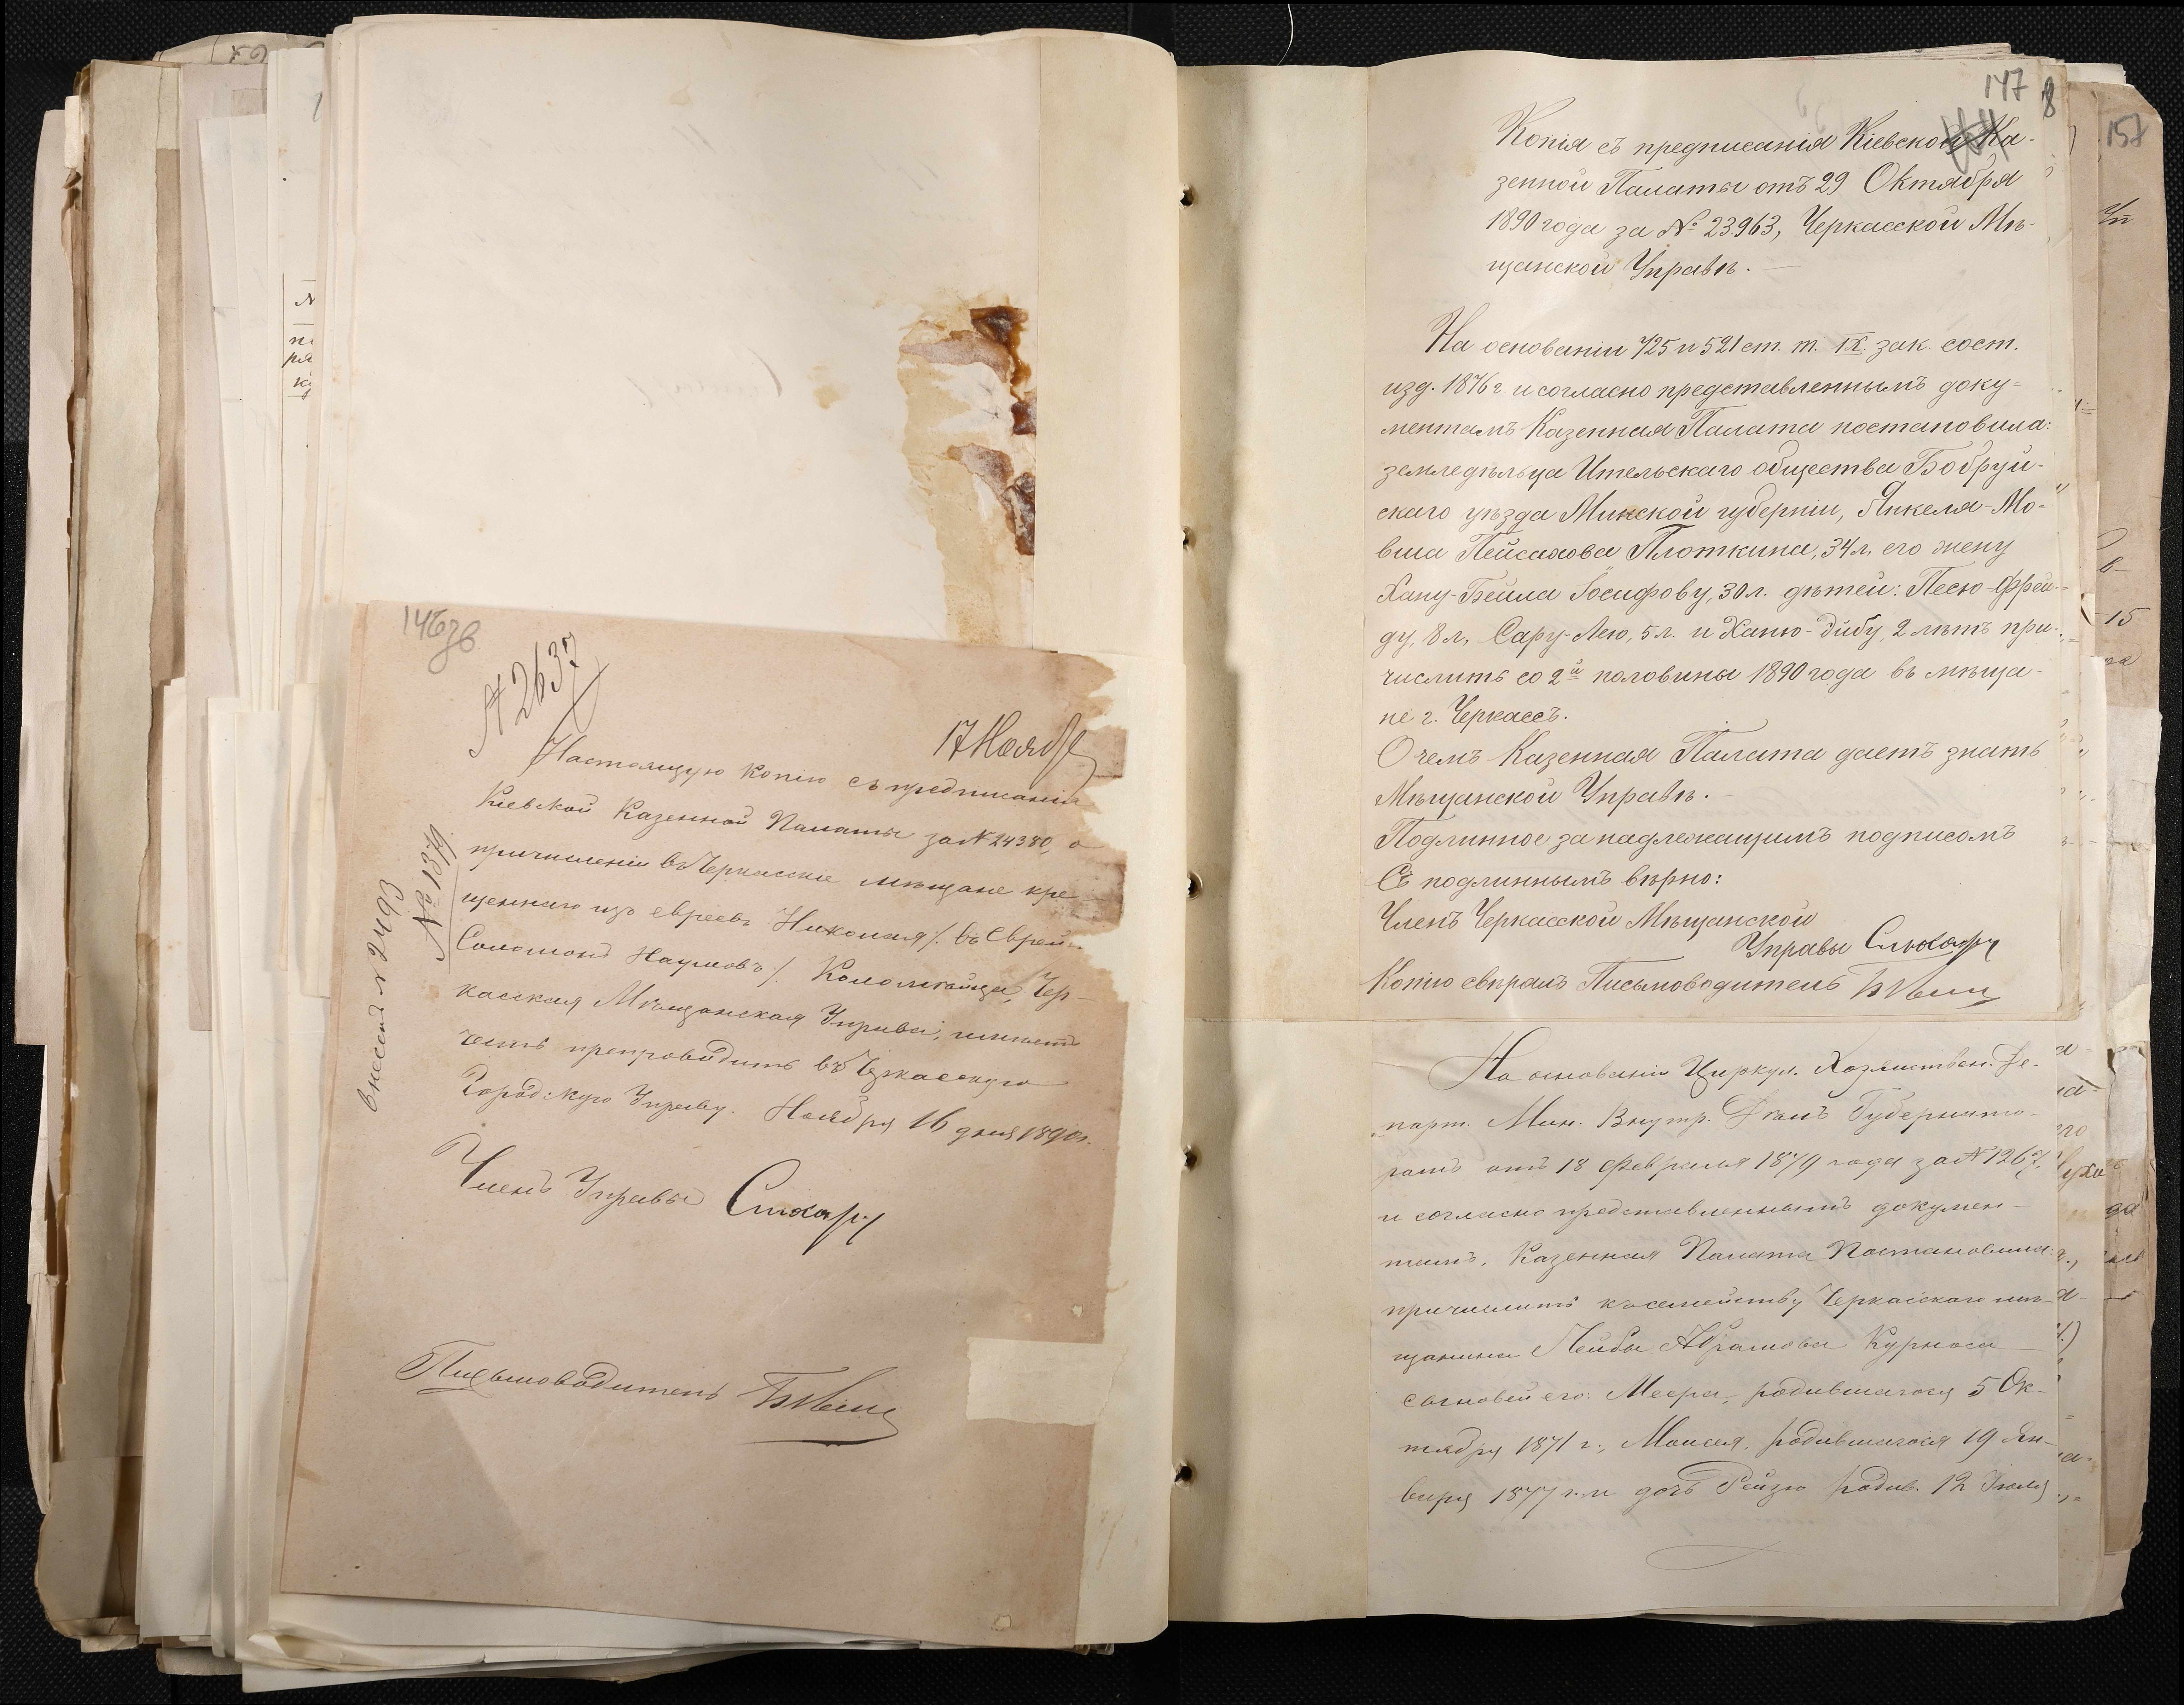 146зв
№ 2637
17 Ноябр
Настоящую копію съ предписанія
Кіевской Казенной Палаты за № 24380, о
причисленіи въ Черкасскіе мѣщане кре-
щеннаго изъ евреевъ Николая /. въ Еврей.
Соломонъ Наумовъ /. Коломойца, Чер-
касская Мѣщанская Управа, имѣетъ
честь препроводить въ Черкасскую
Городскую Управу. Ноября 16 дня 1890 г.
Членъ Управы
Письмоводитель
№ 1379
внесенъ № 2493
147
8
Копія съ предписанія Кіевской Ка-
зенной Палаты отъ 29 Октября
1890 года за № 23963, Черкасской Мѣ-
щанской Управѣ.
На основаніи 725 и 521 ст. т. IX. зак. сост.
изд. 1876 г. и согласно представленнымъ доку=
ментамъ Казенная Палата постановила:
земледѣльца Ительскаго общества Бобруй-
скаго уѣзда Минской губерніи, Янкеля-Мо-
вша Пейсахова Плоткина, 34 л, его жену
Хану-Бейла Іосифову, 30 л. дѣтей: Песю-Фрей-
ду, 8 л, Сару-Лею, 5 л. и Ханю-Дибу, 2 лѣтъ при-
числить со 2й половины 1890 года въ мѣща-
не г. Черкассъ.
О чемъ Казенная Палата даетъ знать
Мѣщанской Управѣ.
Подлинное за надлежащимъ подписомъ
Съ подлиннымъ вѣрно:
Членъ Черкасской Мѣщанской
Управы
Копію свѣрялъ Письмоводитель
На основаніи Циркул. Хозяиствен. Де-
парт. Мин. Внутр. Дѣлъ Губернато-
рамъ отъ 18 Февраля 1879 года за № 1267,
и согласно представленнымъ докумен-
тамъ, Казенная Палата Постановила:
причислить къ семейству Черкасскаго мѣ-
щанина Лейбы Абрамова Курноса
сыновей его: Меера, родившагося 5 Ок-
тября 1871 г., Моисея, родившагося 19 Ян-
варя 1877 г. и дочь Рейзю родив. 12 Іюля
157